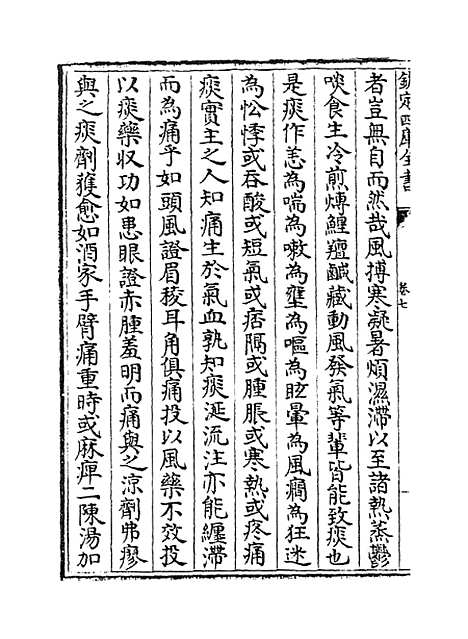 欽定四庫全書
卷七
者豈無自而然哉風搏寒凝暑煩濕滯以至諸熱蒸鬱
啖食生冷煎煿鯹羶鹹藏動風發氣等輩皆能致痰也
是痰作恙為喘為嗽為壅為嘔為眩暈為風癇為狂迷
為忪悸或吞酸或短氣或痞隔或腫脹或寒熱或疼痛
痰實主之人知痛生於氣血孰知痰涎流注亦能纏滯
而為痛乎如頭風證眉稜耳角俱痛投以風藥不效投
以痰藥収功如患眼證赤腫羞明而痛與之涼劑弗瘳
與之痰劑獲愈如酒家手臂痛重時或麻痺二陳湯加